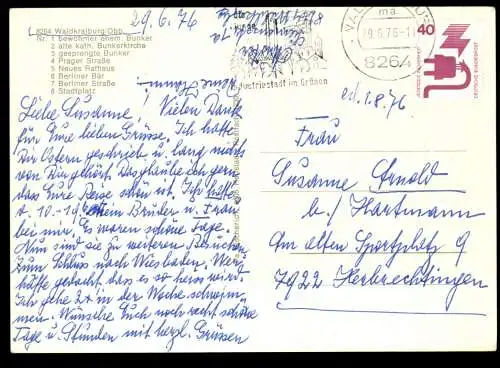 29.6.76
8264 Waldkraiburg/Obb.
Nr. 1 bewohnter ehem. Bunker
2 alte kath. Bunkerkirche
3 gesprengte Bunker
4 Prager Straße
5 Neues Rathaus
6 Berliner Bär
7 Berliner Straße
8 Stadtplatz
Liebe Susanne! Vielen Dank
für Eure lieben Grüsse. Ich hatte
Dir Ostern geschrieb. u. lang nichts
von Dir gehört. Das glaube ich gern
dass Eure Reise schön ist. Ich hatte
v. 10.-19. mein Bruder u. Frau
bei mir. Es waren schöne Tage.
Nun sind sie zu weiteren Besuchen
zum Schluss nach Wiesbaden. Wer
hätte gedacht dass es so heiss wird.
Ich gehe 2x in der Woche schwim-
men. Wünsche Euch noch recht schöne
Tage u. Stunden mit herzl. Grüssen
Industriestadt im Grünen
29.6.76-11
8264
40
DEUTSCHE BUNDESPOST
erl. 1.8.76
Frau
Susanne Arnold
b./ Hartmann
Am alten Sportplatz 9
7922 Herbrechtingen